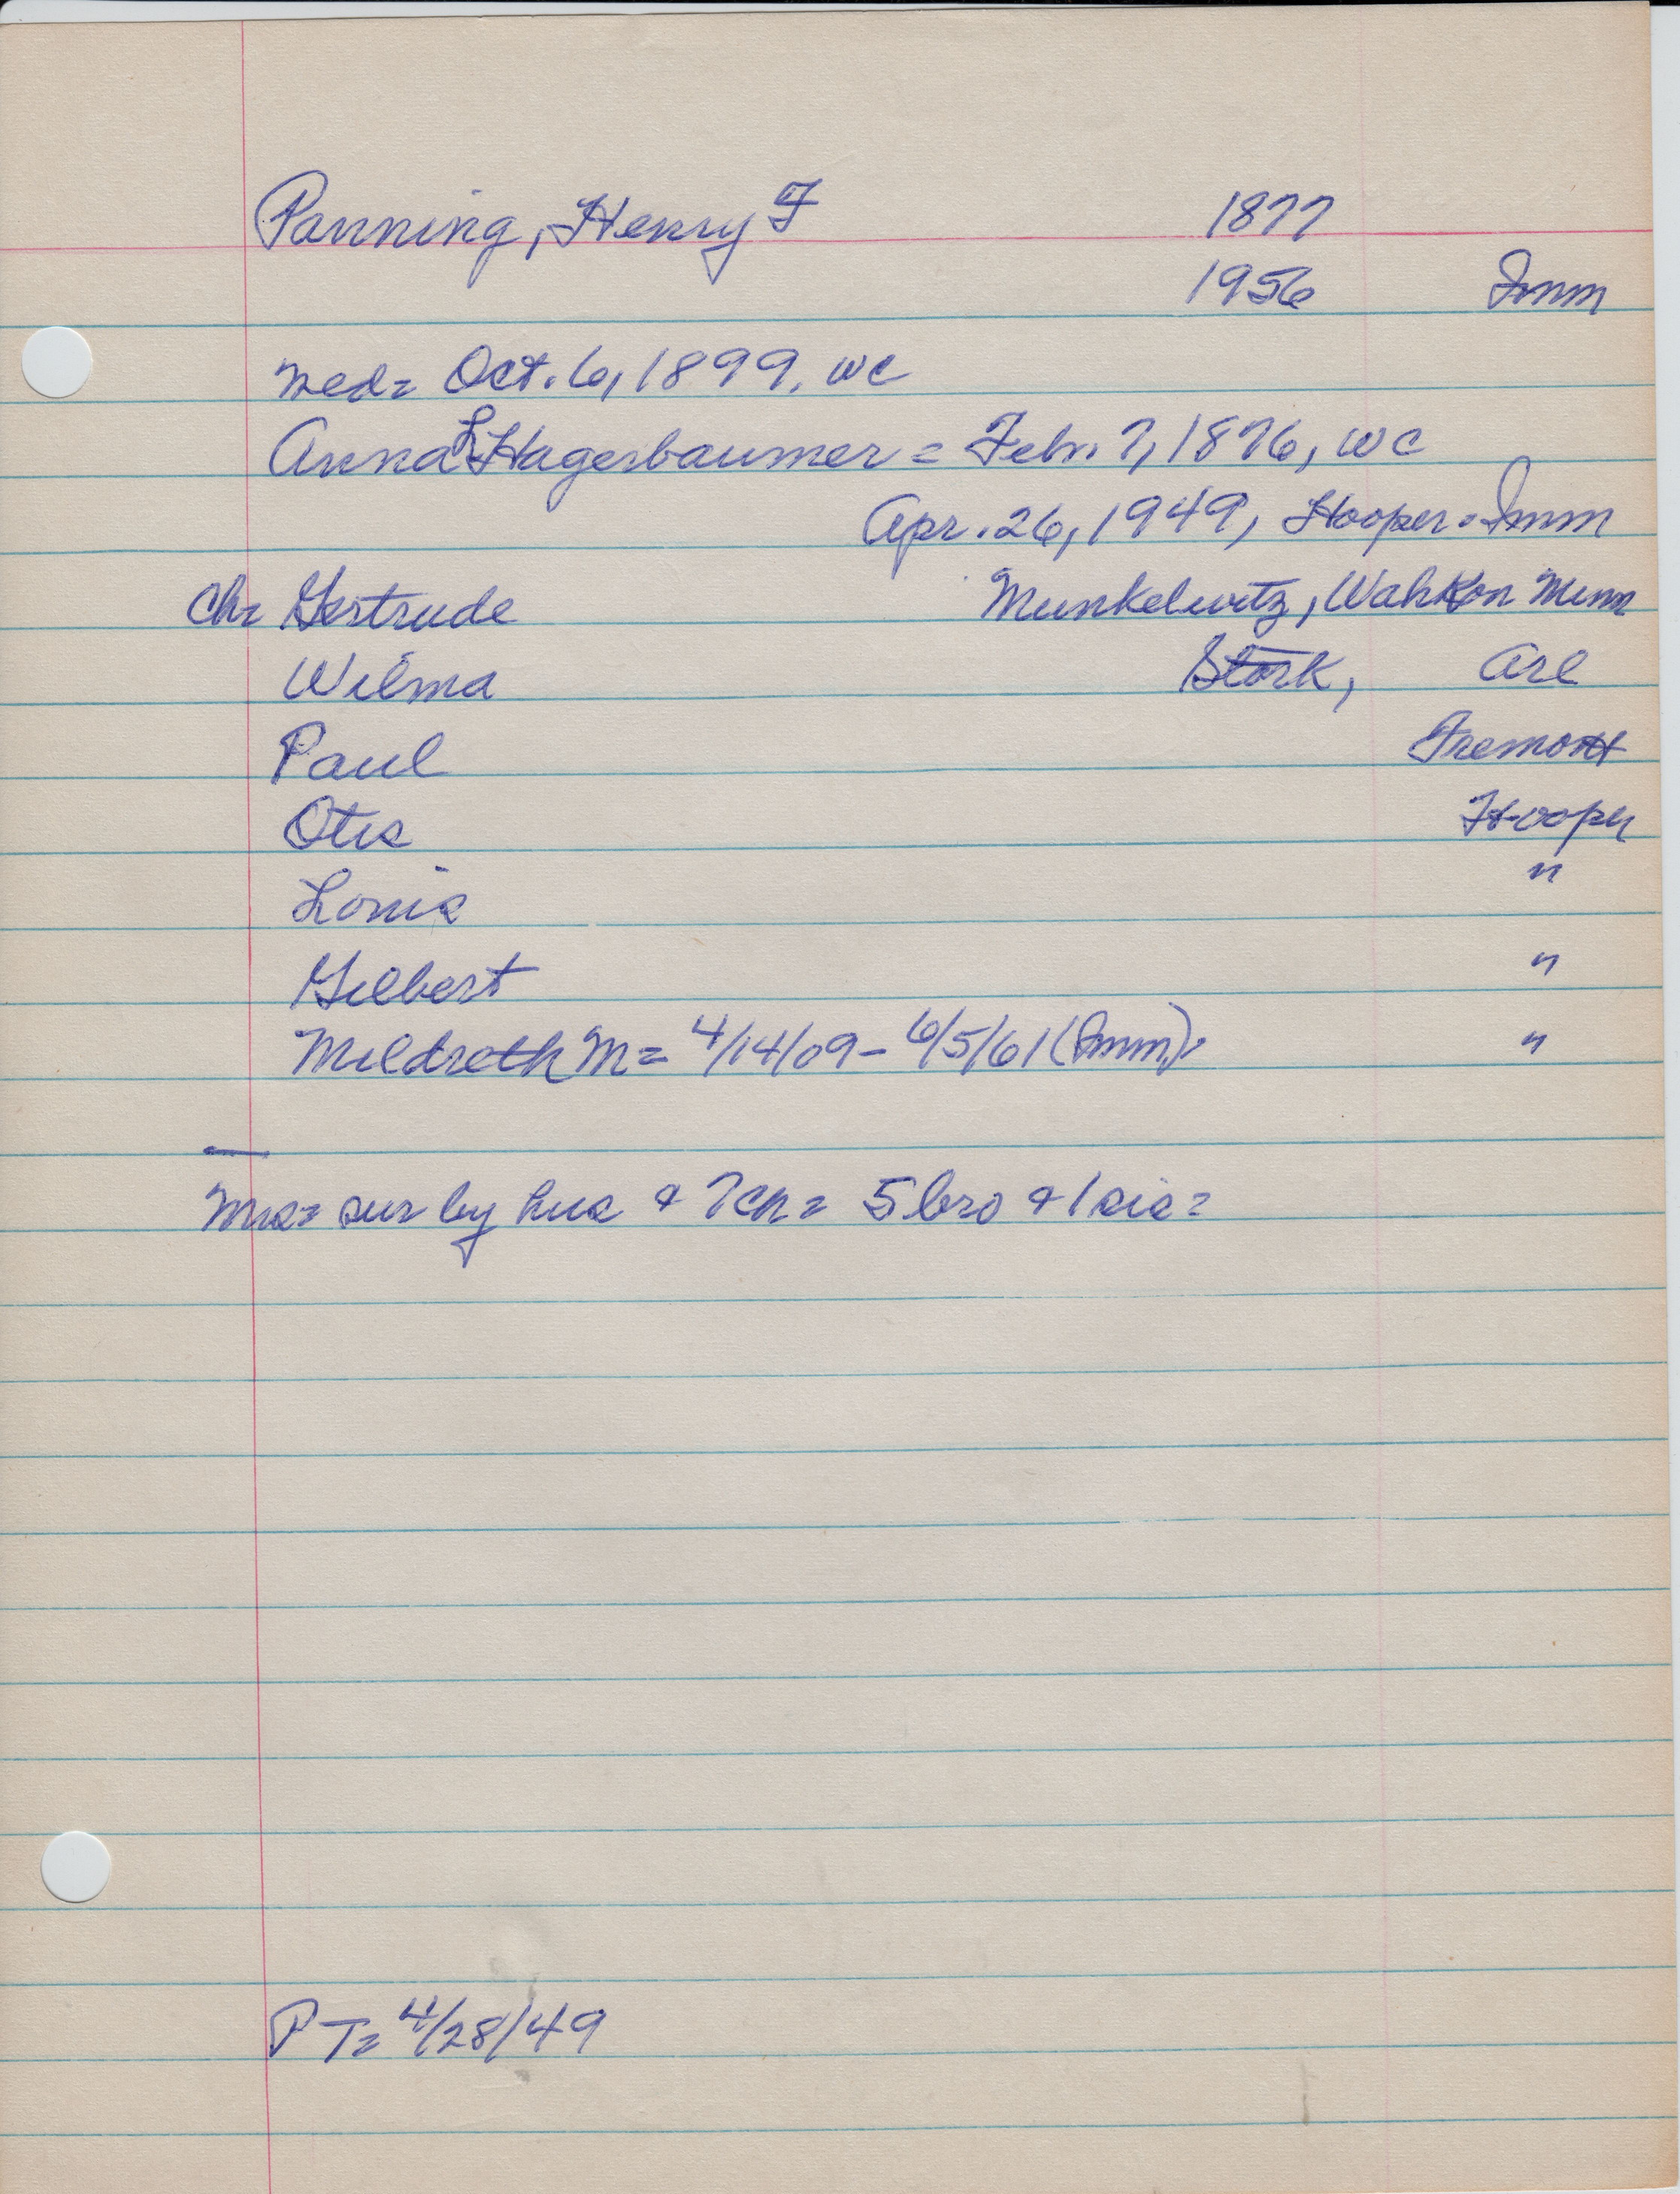 Panning, Henry F 1877
1956 Imm
Med= Oct. 6, 1899, WC
Anna L Hagerbaumer = Feb. 7, 1876, WC
Apr. 26, 1949, Hooper = Imm
Ch= Gertrude Munkelwitz, Wahkon Minn
Wilma Stork, Arl
Paul Fremont
Otis Hooper
Louis "
Gilbert "
Mildreth M= 4/14/09 - 6/5/61 (Imm) "
Mrs= sur by hus & 7 ch= 5 bro & 1 sis=
PT= 4/28/49